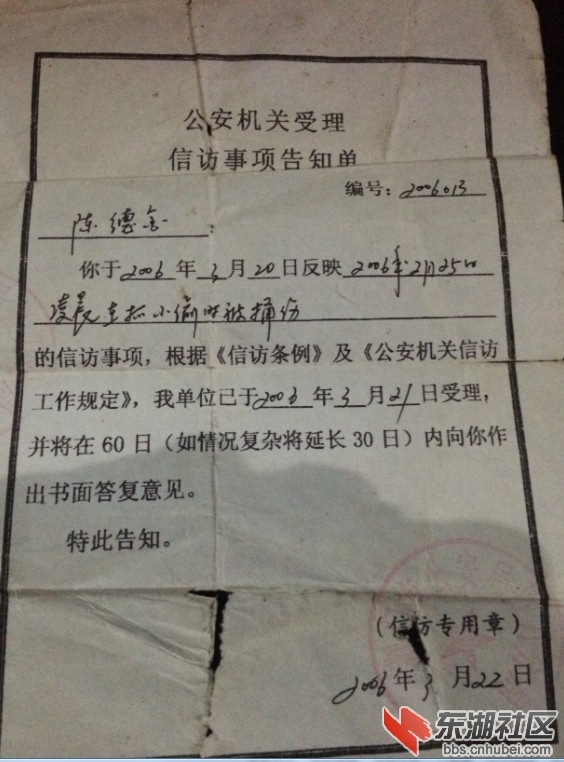 公安机关受理
信访事项告知单
编号：2006013
陈德金：
你于2006年3月20日反映2006年2月25日
凌晨在抓小偷时被捅伤
的信访事项，根据《信访条例》及《公安机关信访
工作规定》，我单位已于2006年3月21日受理，
并将在60日（如情况复杂将延长30日）内向你作
出书面答复意见。
特此告知。
公安局
（信访专用章）
2006年3月22日
东湖社区
bbs.cnhubei.com